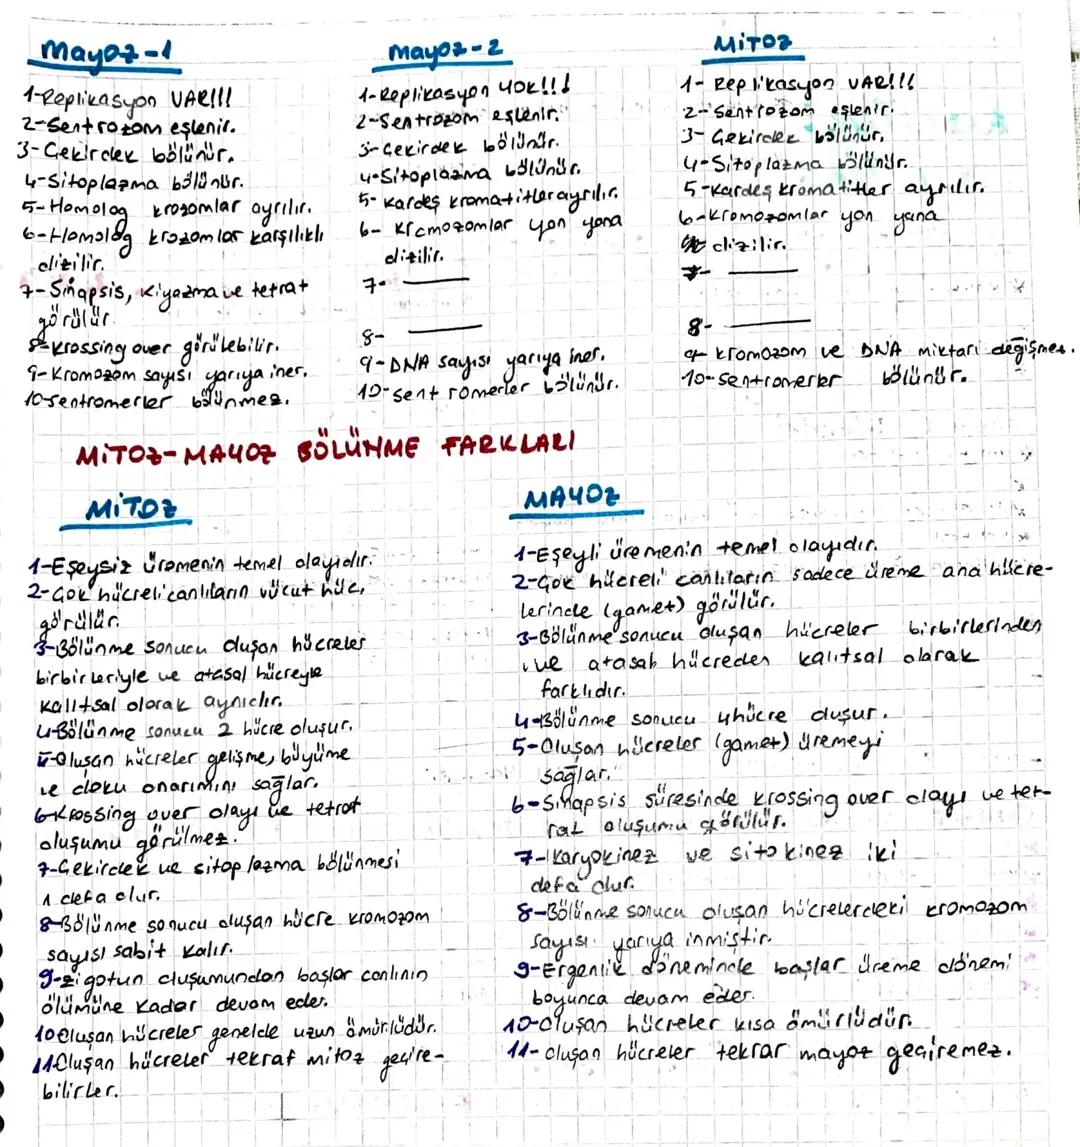 Mayoz-1
1-Replikasyon VAR!!!
2-Sentrozom eşlenir.
3-Çekirdek bölünür.
4-Sitoplazma bölünür.
5-Homolog krozomlar ayrılır.
6-Homolog krozomlar karşılıklı
dizilir.
7-Sinapsis, kiyazma ve tetrat
görülür.
8-krossing over görülebilir.
9-Kromozom sayısı yarıya iner.
10-sentromerler bölünmez.
Mayoz-2
1-Replikasyon YOK!!!
2-Sentrozom eşlenir.
3-Çekirdek bölünür.
4-Sitoplazma bölünür.
5-kardeş kromatitler ayrılır.
6-Kromozomlar yan yana
dizilir.
7-
8-
9-DNA sayısı yarıya iner.
10-sentromerler bölünür.
MİTOZ
1-Replikasyon VAR!!!
2-Sentrozom eşlenir.
3-Çekirdek bölünür.
4-Sitoplazma bölünür.
5-kardeş kromatitler ayrılır.
6-kromozomlar yan yana
dizilir.
7-
8-
9-kromozom ve DNA miktarı değişmez.
10-sentromerler bölünür.
MİTOZ-MAYOZ BÖLÜNME FARKLARI
MİTOZ
1-Eşeysiz üremenin temel olayıdır.
2-Çok hücreli canlıların vücut hüc.
görülür.
3-Bölünme sonucu oluşan hücreler
birbirleriyle ve atasal hücreyle
kalıtsal olarak aynıdır.
4-Bölünme sonucu 2 hücre oluşur.
5-Oluşan hücreler gelişme, büyüme
ve doku onarımını sağlar.
6-Krossing over olayı ve tetrat
oluşumu görülmez.
7-Çekirdek ve sitoplazma bölünmesi
1 defa olur.
8-Bölünme sonucu oluşan hücre kromozom
sayısı sabit kalır.
9-zigotun oluşumundan başlar canlının
ölümüne kadar devam eder.
10-Oluşan hücreler genelde uzun ömürlüdür.
11-Oluşan hücreler tekrar mitoz geçire-
bilirler.
MAYOZ
1-Eşeyli üremenin temel olayıdır.
2-Çok hücreli canlıların sadece üreme ana hücre-
lerinde (gamet) görülür.
3-Bölünme sonucu oluşan hücreler birbirlerinden
ve atasal hücreden kalıtsal olarak
farklıdır.
4-Bölünme sonucu 4 hücre oluşur.
5-Oluşan hücreler (gamet) üremeyi
sağlar.
6-Sinapsis süresinde krossing over olayı ve tet-
rat oluşumu görülür.
7-Karyokinez ve sitokinez iki
defa olur.
8-Bölünme sonucu oluşan hücrelerdeki kromozom
sayısı yarıya inmiştir.
9-Ergenlik döneminde başlar üreme dönemi
boyunca devam eder.
10-Oluşan hücreler kısa ömürlüdür.
11-oluşan hücreler tekrar mayoz geçiremez.